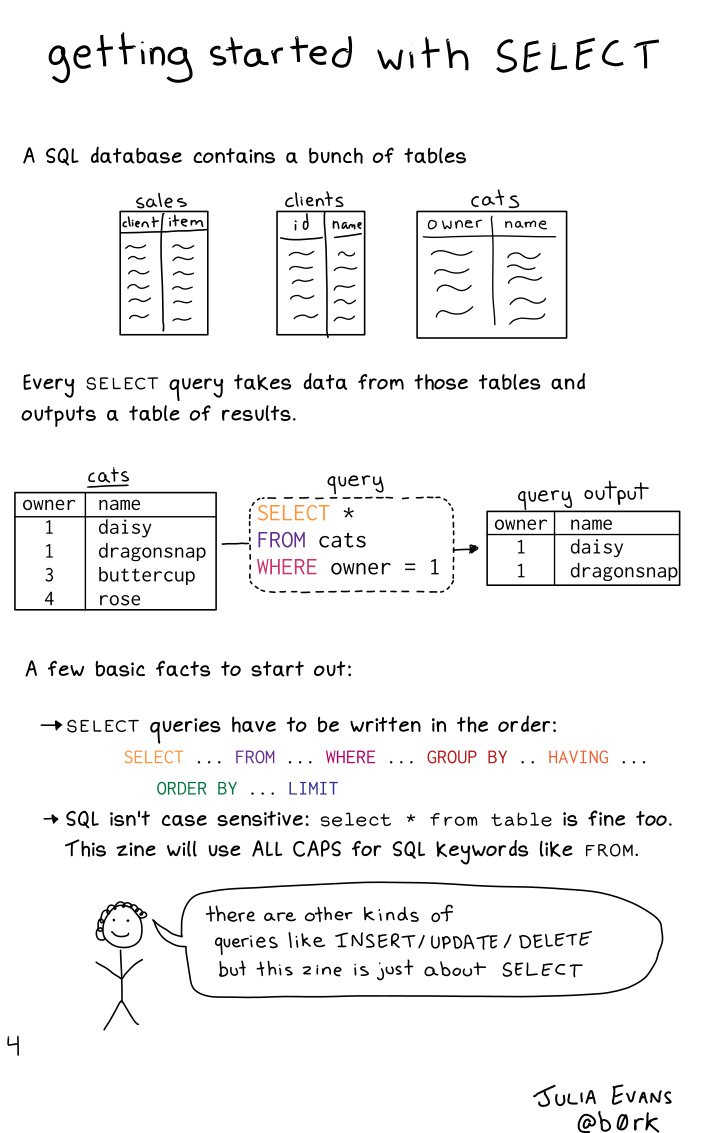 getting started with SELECT
A SQL database contains a bunch of tables
sales
client item
clients
id name
cats
owner name
Every SELECT query takes data from those tables and
outputs a table of results.
cats
owner name
1 daisy
1 dragonsnap
3 buttercup
4 rose
query
SELECT *
FROM cats
WHERE owner = 1
query output
owner name
1 daisy
1 dragonsnap
A few basic facts to start out:
→ SELECT queries have to be written in the order:
SELECT ... FROM ... WHERE ... GROUP BY .. HAVING ...
ORDER BY ... LIMIT
→ SQL isn't case sensitive: select * from table is fine too.
This zine will use ALL CAPS for SQL keywords like FROM.
there are other kinds of
queries like INSERT/UPDATE/DELETE
but this zine is just about SELECT
4
JULIA EVANS
@b0rk